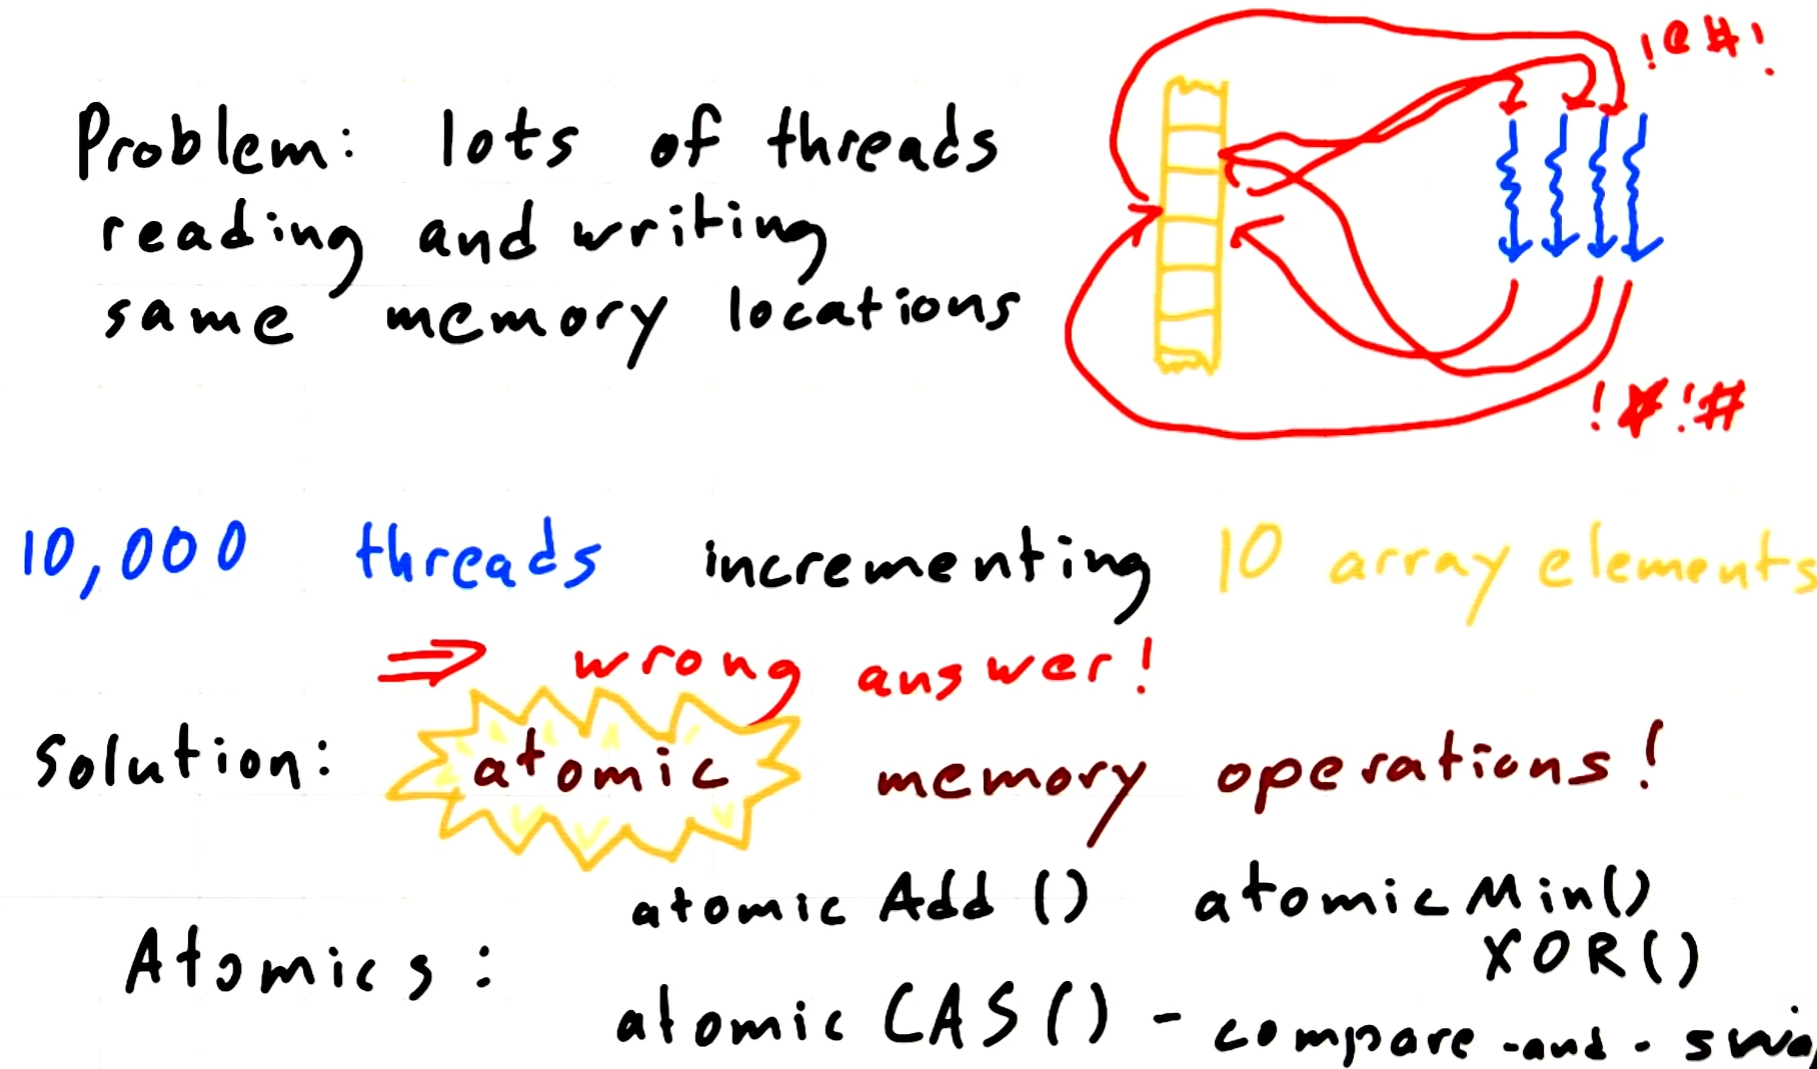 !@#!
Problem: lots of threads
reading and writing
same memory locations
!*!#
10,000 threads incrementing 10 array elements
⇒ wrong answer!
Solution: atomic memory operations!
atomic Add () atomic Min()
XOR()
Atomics:
atomic CAS() - compare-and-swap